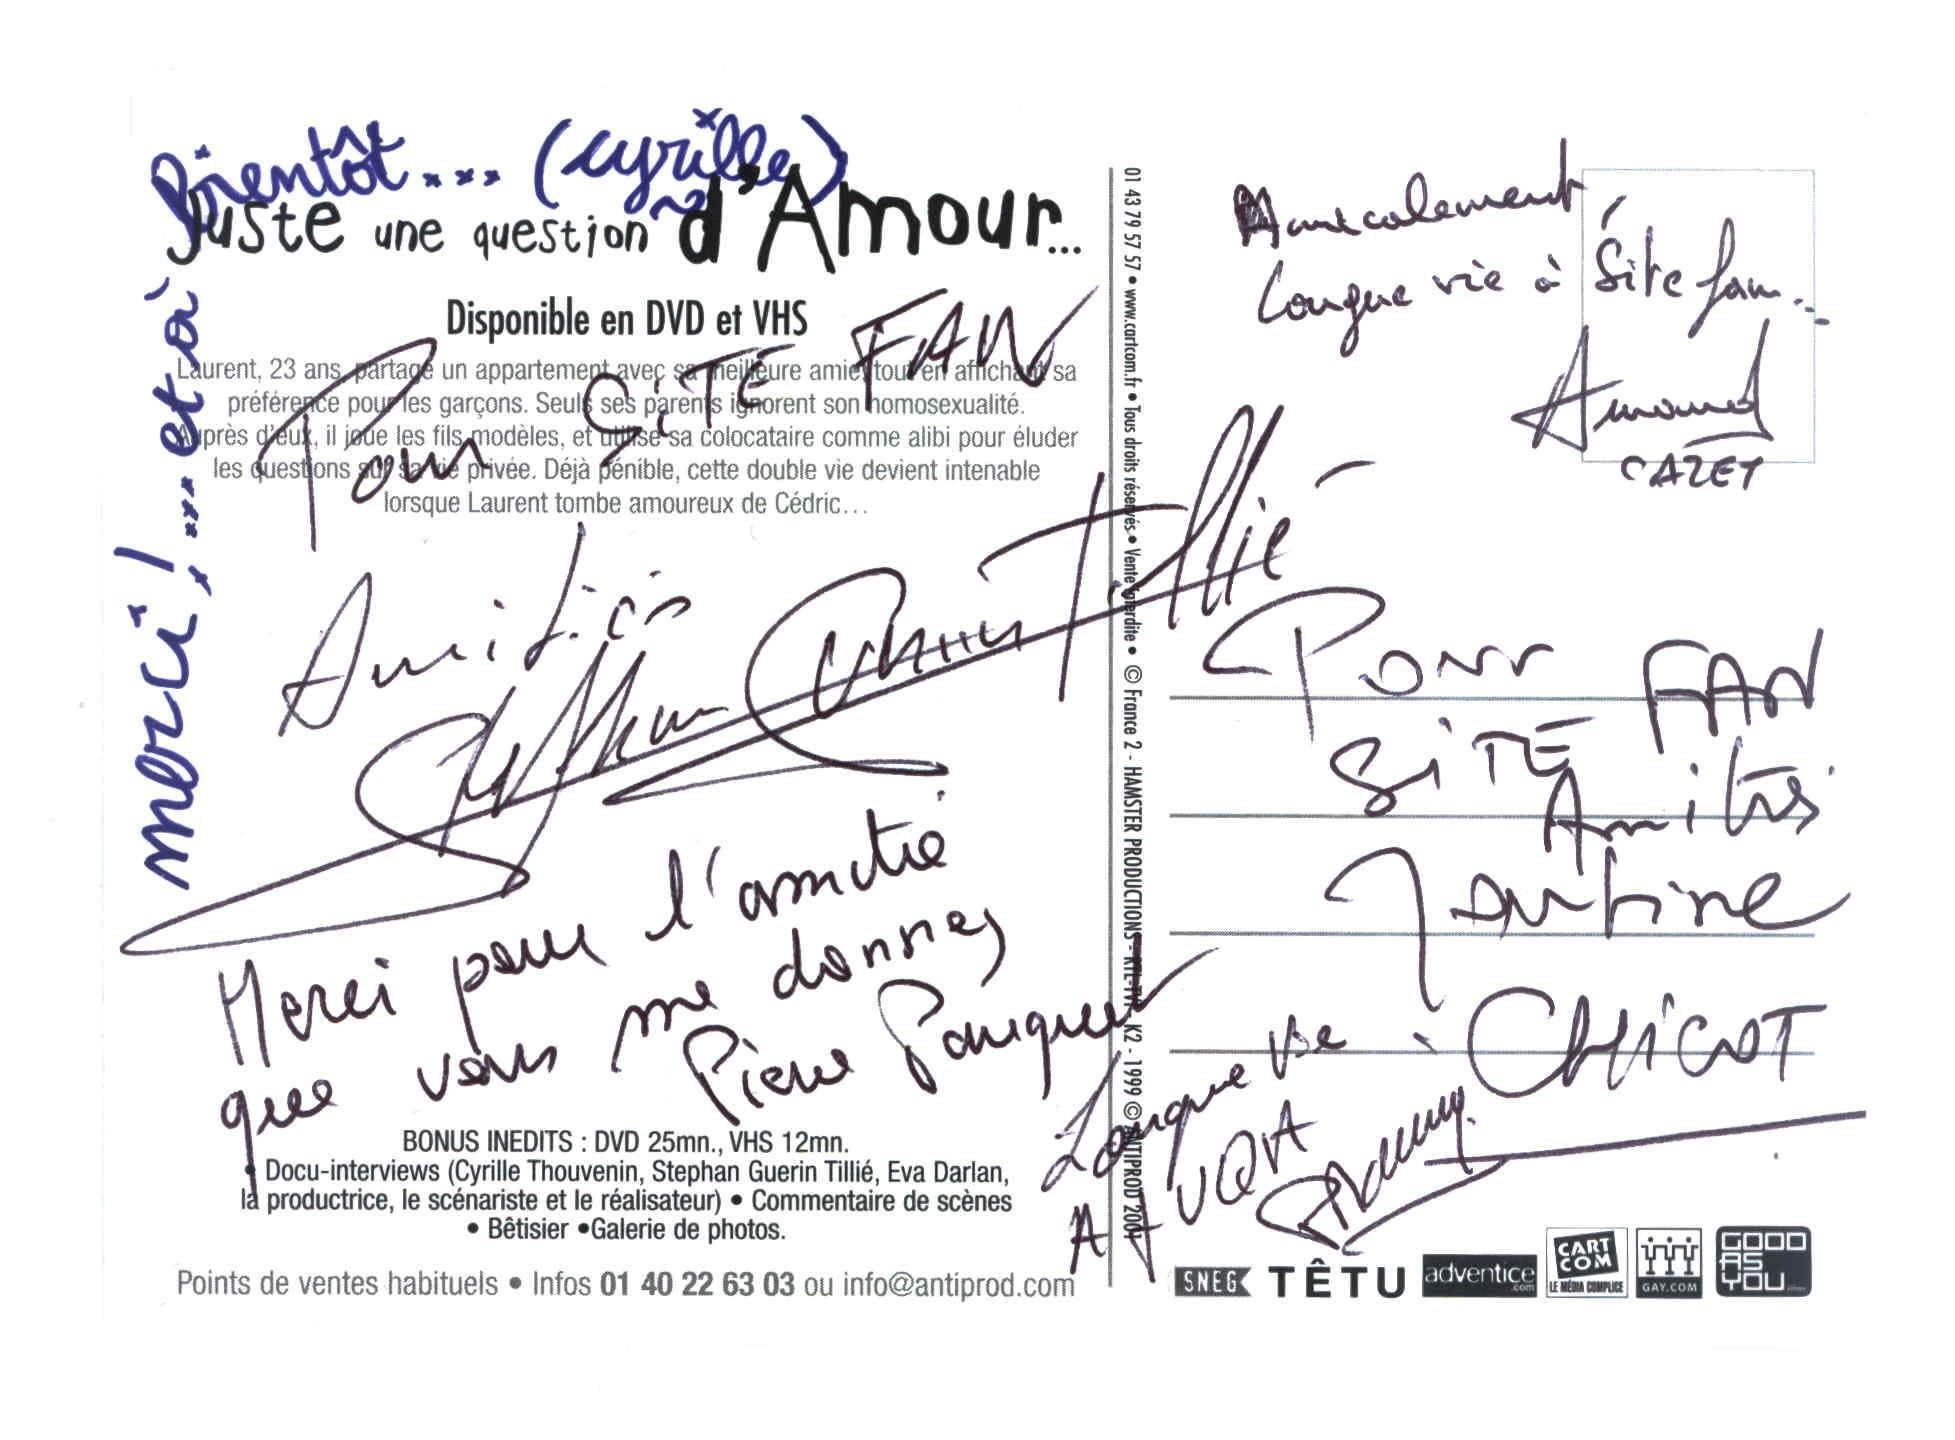 merci !... et à
Bientôt... (cyrille)
Juste une question d'Amour...
Disponible en DVD et VHS
Laurent, 23 ans, partage un appartement avec sa meilleure amie, tout en affichant sa
préférence pour les garçons. Seuls ses parents ignorent son homosexualité.
Auprès d'eux, il joue les fils modèles, et utilise sa colocataire comme alibi pour éluder
les questions sur sa vie privée. Déjà pénible, cette double vie devient intenable
lorsque Laurent tombe amoureux de Cédric...
Pour SiTE FAN
Amitiés
Stephan Guerin Tillié
Merci pour l'amitié
que vous me donnez
Pierre
BONUS INEDITS : DVD 25mn., VHS 12mn.
• Docu-interviews (Cyrille Thouvenin, Stephan Guerin Tillié, Eva Darlan,
la productrice, le scénariste et le réalisateur) • Commentaire de scènes
• Bêtisier •Galerie de photos.
Points de ventes habituels • Infos 01 40 22 63 03 ou info@antiprod.com
01 43 79 57 57 • www.cartcom.fr • Tous droits réservés • Vente interdite • © France 2 - HAMSTER PRODUCTIONS - RTL-TVI - K2 - 1999 © ANTIPROD 2001
Amicalement
Longue vie à Site fan...
Arnaud
CAZET
Pour FAN
SiTE
Amitiés
Martine
CHICOT
Longue vie à
AJ VQA
SNEG
TÊTU
adventice.com
CART COM
LE MÉDIA COMPLICE
GAY.COM
GOOD
AS
YOU